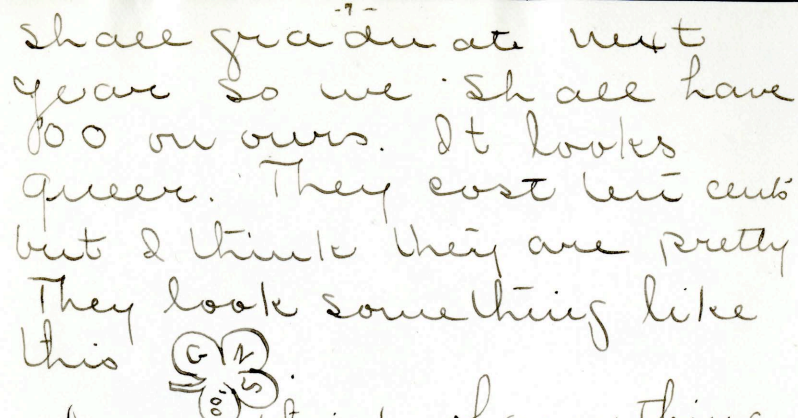 shall graduate next
year so we shall have
'00 on ours. It looks
queer. They cost ten cents
but I think they are pretty
They look something like
this
G N
S
'00